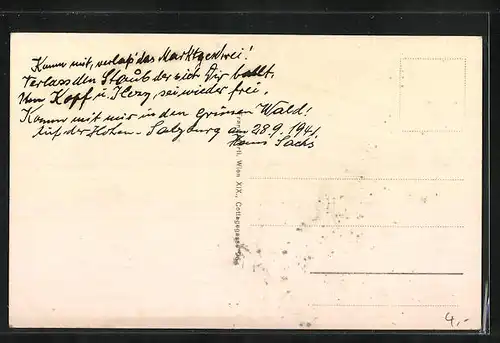 Komm mit, verlass' das Marktgeschrei!
Verlass den Staub der sich Dir ballt,
Um Kopf u. Herz, sei wieder frei,
Komm mit mir in den Grünen Wald!
Auf der Hohen-Salzburg am 28.9.1941.
Hans Sachs
Wien XIX., Cottagegasse
4,-